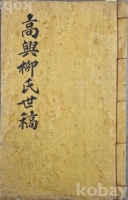 高興柳氏世稿
kobay